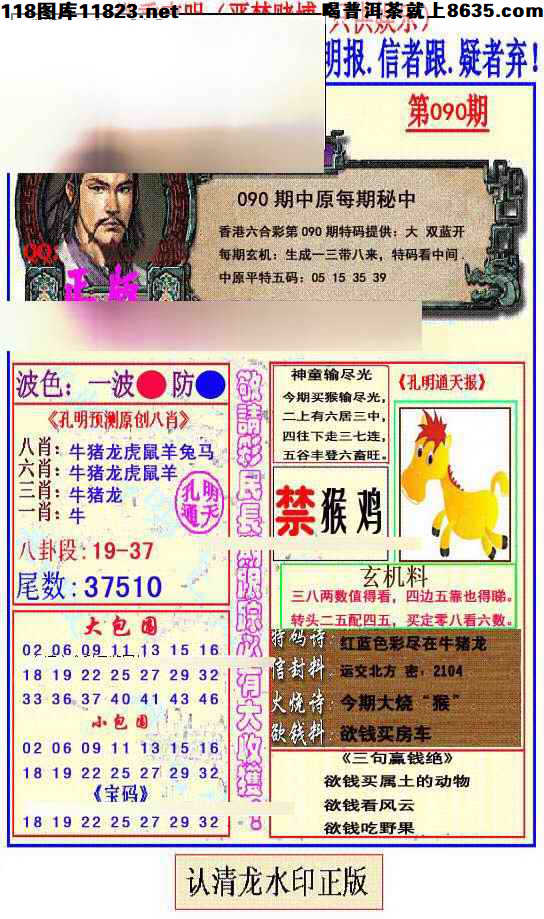 118图库11823.net
喝普洱茶就上8635.com
明报.信者跟.疑者弃!
第090期
090 期中原每期秘中
香港六合彩第 090 期特码提供：大 双蓝开
每期玄机：生成一三带八来，特码看中间.
中原平特五码：05 15 35 39
正版
波色：一波 防
《孔明预测原创八肖》
八肖：牛猪龙虎鼠羊兔马
六肖：牛猪龙虎鼠羊
三肖：牛猪龙
一肖：牛
孔明
通天
八卦段:19-37
尾数:37510
大包围
02 06 09 11 13 15 16
18 19 22 25 27 29 32
33 36 37 40 41 43 46
小包围
02 06 09 11 13 15 16
18 19 22 25 27 29 32
《宝码》
18 19 22 25 27 29 32
敬請彩民長期跟踪必有大收獲!
神童输尽光
今期买猴输尽光,
二上有六居三中,
四往下走三七连,
五谷丰登六畜旺。
《孔明通天报》
禁 猴 鸡
玄机料
三八两数值得看，四边五靠也得睇。
转头二五配四五，买定零八看六数。
特码诗：红蓝色彩尽在牛猪龙
信封料：运交北方 密：2104
火烧诗：今期大烧“猴”
欲钱料：欲钱买房车
《三句赢钱绝》
欲钱买属土的动物
欲钱看风云
欲钱吃野果
认清龙水印正版